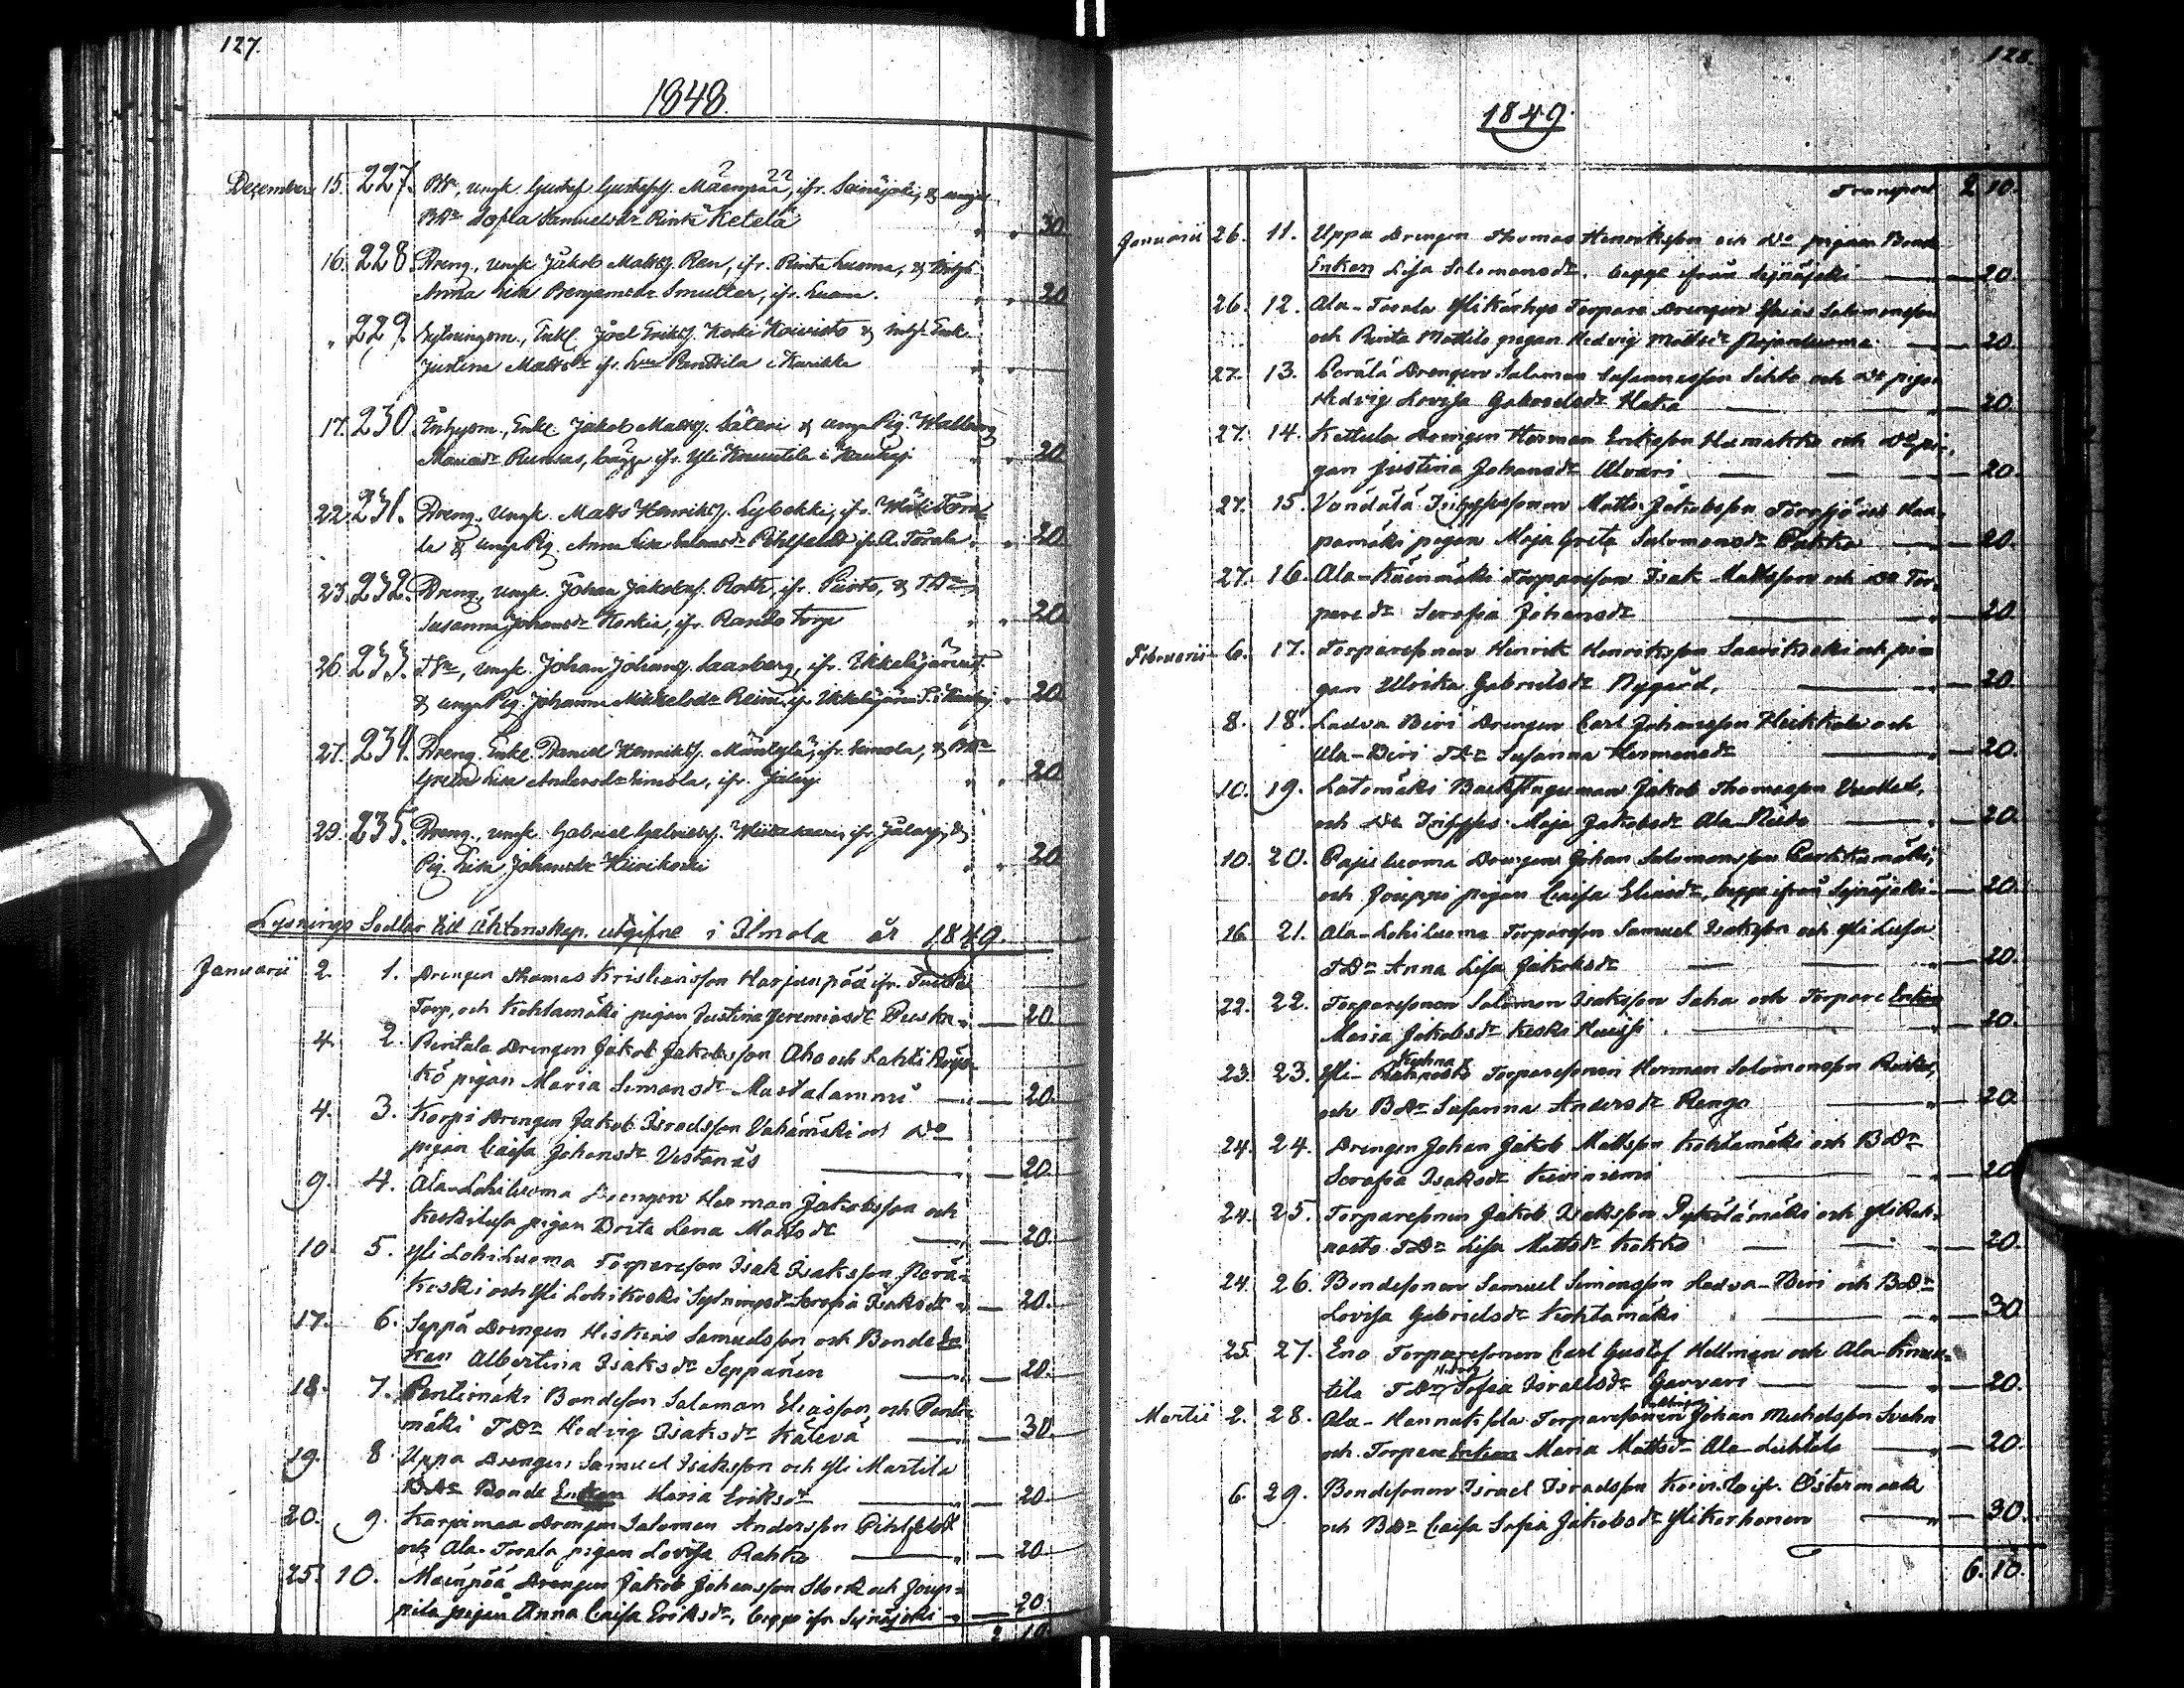 127.
1848.
December 15. 227. BSn, ungk. Gustaf Gustafss. Mäenpää, ifr. Seinäjoki, & unga
BDr Sofia Samuelsdr Rinta Ketelä " " 30
16. 228. Dreng., ungk. Jakob Matss. Ren, ifr. Rinta Luoma, &
Anna Lisa Benjamsdr Smultar, ifr. Luoma. " " 20
" 229. Sytningsm., Enkl. Joel Erikss. Koski Koivisto & Enk.
Justina Mattsdr ifr. Panttila i Kurikka " "
17. 230. Inhysm., Enkl. Jakob Matss. Säteri & unga Pig. Walborg
Mariasdr Runsas, bägge ifr. Yli Knuutila i " " 20
22. 231. Dreng., Ungk. Matts Henrikss. Lybekki, ifr. Törä
la & unga Pig. Anna Lisa Pihlfeldt ifr A. Törälä " " 20
23. 232. Dreng., ungk. Johan Jakobss. Roth, ifr. & TDr
Susanna Johansdr Korkia, ifr. Torp " " 20
26. 233. TSn, ungk. Johan Johanss. Saarberg, ifr.
& unga Pig. Johanna Mikkelsdr Reini, ifr. " 20
27. 234. Dreng. Enkl. Daniel Henrikss. Mäntylä, ifr. Ilmola, & BDr
Greta Lisa Andersdr Ilmola, ifr. " " 20
29. 235. Dreng., ungk. Gabriel Gabrielss. ifr. &
Pig. Lisa Johansdr Kiikoski " " 20
Lysnings Sedlar till äktenskap utgifne i Ilmola år 1849.
Januarii 2. 1. Drengen Thomas Kristiansson Harjunpää ifr.
Torp, och Kohtamäki pigan Justina Jeremiasdr Puska " — 20
4. 2. Rintala Drengen Jakob Jakobsson Aho och Lahti
kö pigan Maria Simonsdr Mastalammi — — 20.
4. 3. Korpi Drengen Jakob Israelsson Vähämäki och Do
pigan Caisa Johansdr Vestanäs — 20.
9. 4. Ala-Lohiluoma Drengen Herman Jakobsson och
Keskiluoma pigan Brita Lena Mattsdr — " — 20.
10. 5. Yli Lohiluoma Torpareson Isak Isaksson Perä-
koski och Yli Lohikoski Sytningsdr Serafia Isaksdr " — 20.
17. 6. Seppä Drengen Hiskias Samuelsson och Bonde En-
kan Albertina Isaksdr Seppänen — " — 20.
18. 7. Pentimäki Bondeson Salomon Eliasson och Penti-
mäki TDr Hedvig Isaksdr Kätevä — " — 30.
19. 8 Uppa Drengen Samuel Isaksson och Yli Martila
BDr Bonde Enkan Maria Eriksdr — " — 20.
20. 9. Karpimaa Drengen Salomon Andersson Pihlfeldt
och Ala-Torala pigan Lovisa Rahko — " — 20
25. 10. Mäenpää Drengen Jakob Johansson Stork och Joup-
pila pigan Anna Caisa Eriksdr, begge ifr Seinäjoki " — 20.
2 10
128.
1849.
Transport 2 10.
Januarii 26. 11. Uppa Drengen Thomas Henriksson och Do pigan Bonde
Enkan Lisa Salomonsdr. begge ifrån Seinäjoki — — 20.
26. 12. Ala-Torala Ylikärhys Torpare Drengen Esaias Salomonsson
och Rinta Mattila pigan Hedvig Mattsdr — " — 20.
27. 13. Perälä Drengen Salomon Susannasson Sihto och Do pigan
Hedvig Lovisa Gabrielsdr Haka — " — 20.
27. 14. Kettula Drengen Herman Eriksson Hamakka och Do pi-
gan Justina Johansdr Alvari — — — " — 20.
27. 15. Vändälä Inhysesonen Matts Jakobsson Törnsjö och Haa-
pamäki pigan Maja Greta Salomonsdr Pukka — " — 20.
27. 16. Ala-Käenmäki Torpareson Isak Mattsson och Do Tor-
pare dr Serafia Johansdr — " — 20.
Februarii 6. 17. Torparesonen Henrik Henriksson Saarikoski och pi-
gan Ulrika Gabrielsdr Nygård. — " — 20.
8. 18. Ladva Viri Drengen Carl Johansson Heikkala och
Ala-Viri TDr Susanna Hermansdr — " — 20.
10. 19. Latomäki Backstuguman Jakob Thomasson
och Do Inhyses Maja Jakobsdr Ala-Rinta — " — 20.
10. 20. Pajuluoma Drengen Johan Salomonsson Parkkamäki,
och Jouppi pigan Caisa Eliasdr, begge ifrån Seinäjoki " — 20.
16 21. Ala-Lohiluoma Torpareson Samuel Isaksson och Yli Luoma
TDr Anna Lisa Jakobsdr — — " — 20.
22. 22. Torparesonen Salomon Isaksson Saha och Torpare Enkan
Maria Jakobsdr Koski — " — 20.
23. 23. Yli-Rahnasto Torparesonen Herman Salomonsson
och BDr Susanna Andersdr Rengo — " — 20
24. 24. Drengen Johan Jakob Mattsson Kohtamäki och BDr
Serafia Isaksdr Kiviniemi — " — 20
24. 25. Torparesonen Jakob Isaksson Pyhälämäki och Yli Rah-
nasto TDr Lisa Mattsdr Kokko — — " — 20.
24. 26. Bondesonen Samuel Simonsson Ladva-Viri och BDr
Lovisa Gabrielsdr Kohtamäki — " — 30
25. 27. Eno Torparesonen Carl Gustaf Hellman och Ala-Knuu-
tila TDr Sofia Israelsdr Gavvari — — " — 20.
Martii 2. 28. Ala-Hannuksela Torparesonen Johan Mickelsson Svahn
och Torpare Enkan Maria Mattsdr Ala-Luhtala — " — 20.
6. 29. Bondesonen Israel Israelsson Koivisto ifr. Östermark
och BDr Caisa Sofia Jakobsdr Ylikorhonen — " — 30.
6. 10.